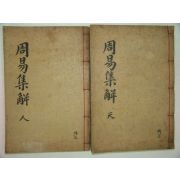 周易集解
天
周易集解
人